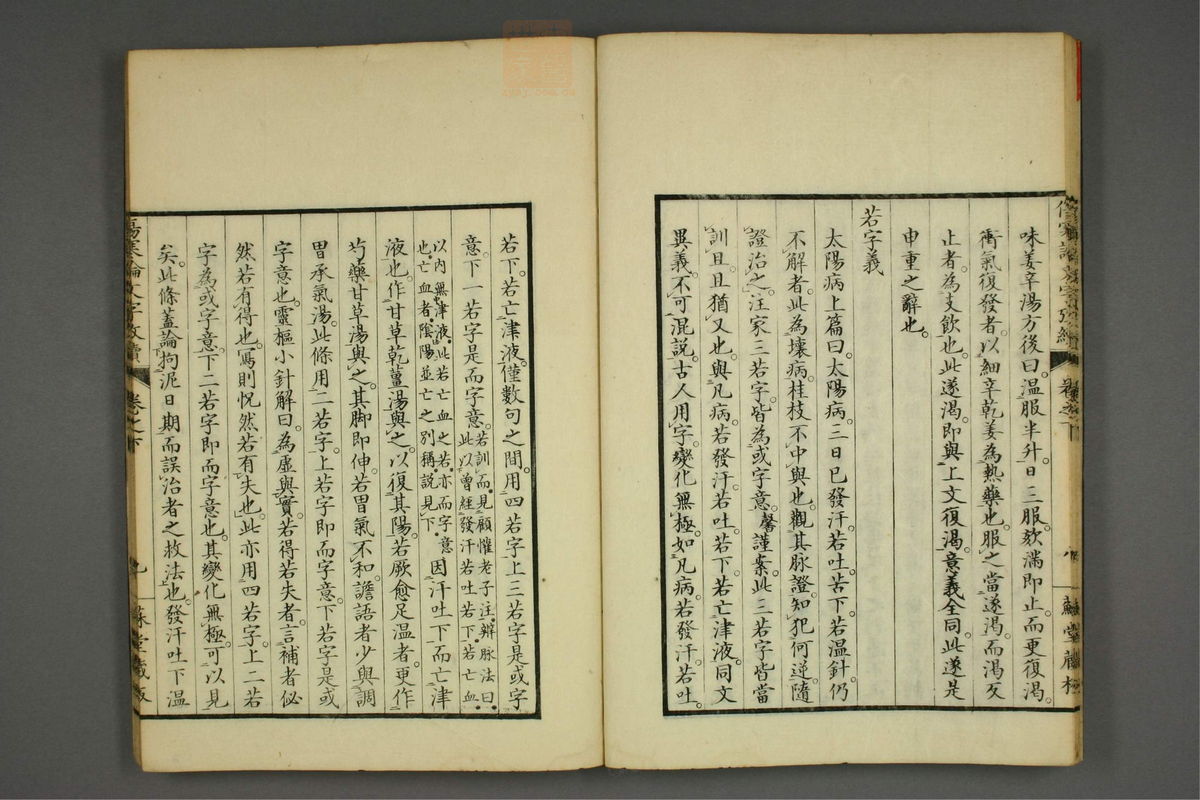 味姜辛湯方後曰。温服半升日三服欬滿即止。而更復渴。
衝氣復發者。以細辛乾姜為熱藥也。服之當遂渴。而渴反
止者。為支飲也。此遂渴。即與上文復渴。意義全同。此遂是
申重之辭也。
若字義
太陽病上篇曰。太陽病。三日已發汗。若吐。若下。若温針。仍
不解者。此為壞病。桂枝不中與也。觀其脉證。知犯何逆。隨
證治之。注家三若字。皆為或字意。馨謹案。此三若字。皆當
訓且。且猶又也。與凡病。若發汗若吐。若下。若亡津液。同文
異義。不可混說。古人用字。變化無極。如凡病若發汗。若吐。
若下。若亡津液。僅數句之間。用四若字。上三若字是或字
意。下一若字是而字意。若訓而。見顧懽老子注。辨脉法曰。
此以曾經發汗若吐若下。若亡血。
以内無津液。此若亡血之若。亦而字意
也。亡血者。陰陽並亡之別稱。說見下。因汗吐下而亡津
液也。作甘草乾薑湯與之。以復其陽。若厥愈足温者。更作
芍藥甘草湯與之。其脚即伸。若胃氣不和。譫語者。少與調
胃承氣湯。此條用二若字。上若字即而字意。下若字是或
字意也。靈樞小針解曰。為虛與實。若得若失者。言補者佖
然若有得也。寫則怳然若有失也。此亦用四若字。上二若
字為或字意。下二若字即而字意也。其變化無極。可以見
矣。此條蓋論拘泥日期。而誤治者之救法也。發汗吐下温
傷寒論文字攷續
卷之下
九